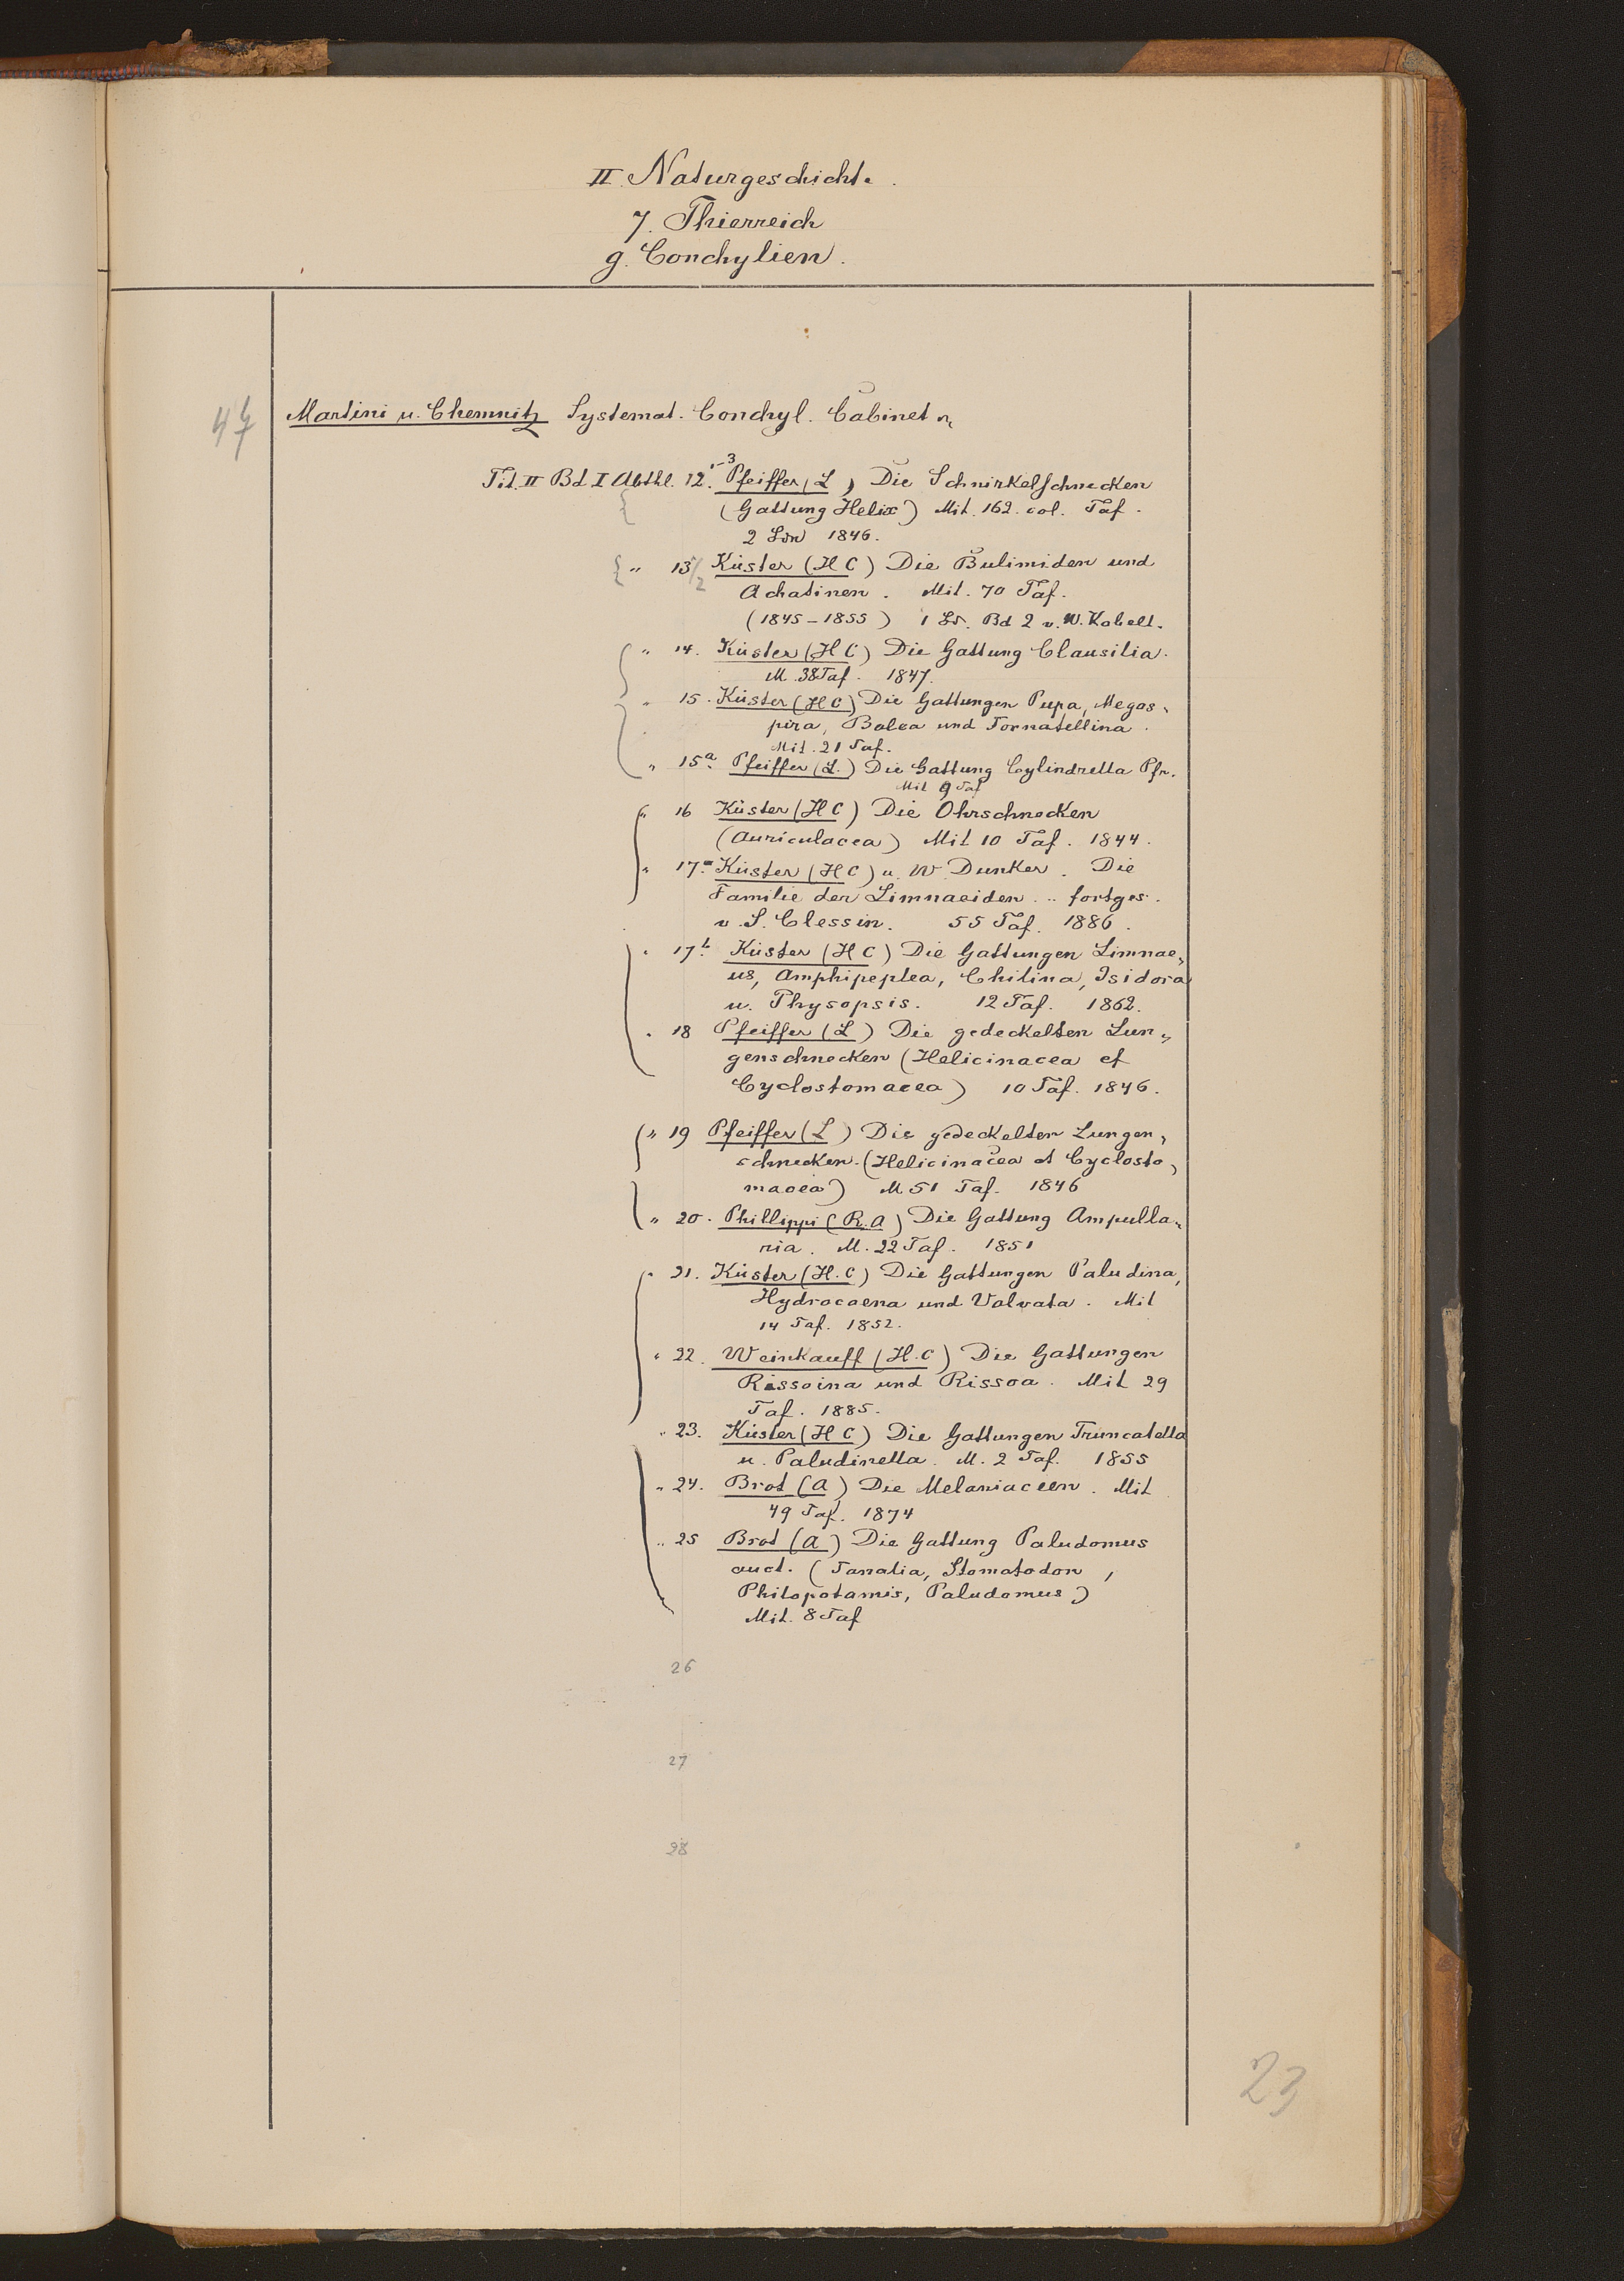 II. Naturgeschicht.
7. Thierreich
g. Conchylien.
47
Martini u. Chemnitz Systemat. Conchyl. Cabinet
Tit. II Bd I Abthl. 12. 1-3 Pfeiffer (L) Die Schnirkelschnecken
(Gattung Helix) Mit. 162. col. Taf.
2 1846.
" 13 1/2 Küster (H C) Die Bulimiden und
Achatinen. Mit. 70 Taf.
(1845-1855) 1 Bd 2 v. W. Kobelt.
" 14. Küster (H C) Die Gattung Clausilia.
M. 38 Taf. 1847.
" 15. Küster (H C) Die Gattungen Pupa, Megas-
pira, Balea und Tornatellina.
Mit. 21 Taf.
" 15a. Pfeiffer (L.) Die Gattung Cylindrella Pfr.
Mit 9 Taf
" 16 Küster (H C) Die Ohrschnecken
(Auriculacea) Mit 10 Taf. 1844.
" 17a. Küster (H C) u. W Dunker. Die
Familie der Limnaeiden .. fortges.
v. S. Clessin. 55 Taf. 1886.
" 17b. Küster (H C) Die Gattungen Limnae-
us, Amphipeplea, Chilina, Isidora
u. Physopsis. 12 Taf. 1862.
" 18 Pfeiffer (L) Die gedeckelten Lun-
genschnecken (Helicinacea et
Cyclostomacea) 10 Taf. 1846.
" 19 Pfeiffer (L) Die gedeckelten Lungen-
schnecken. (Helicinacea et Cyclosto-
macea) M 51 Taf. 1846
" 20. Phillippi (R. A) Die Gattung Ampulla-
ria. M. 22 Taf. 1851
" 21. Küster (H. C) Die Gattungen Paludina,
Hydrocaena und Valvata. Mit
14 Taf. 1852.
" 22. Weinkauff (H. C) Die Gattungen
Rissoina und Rissoa. Mit 29
Taf. 1885.
" 23. Küster (H C) Die Gattungen Truncatella
u. Paludinella. M. 2 Taf. 1855
" 24. Brot (A) Die Melaniaceen. Mit
49 Taf. 1874
" 25 Brot (A) Die Gattung Paludomus
auct. (Tanalia, Stomatodon,
Philopotamis, Paludomus)
Mit. 8 Taf
26
27
28
23